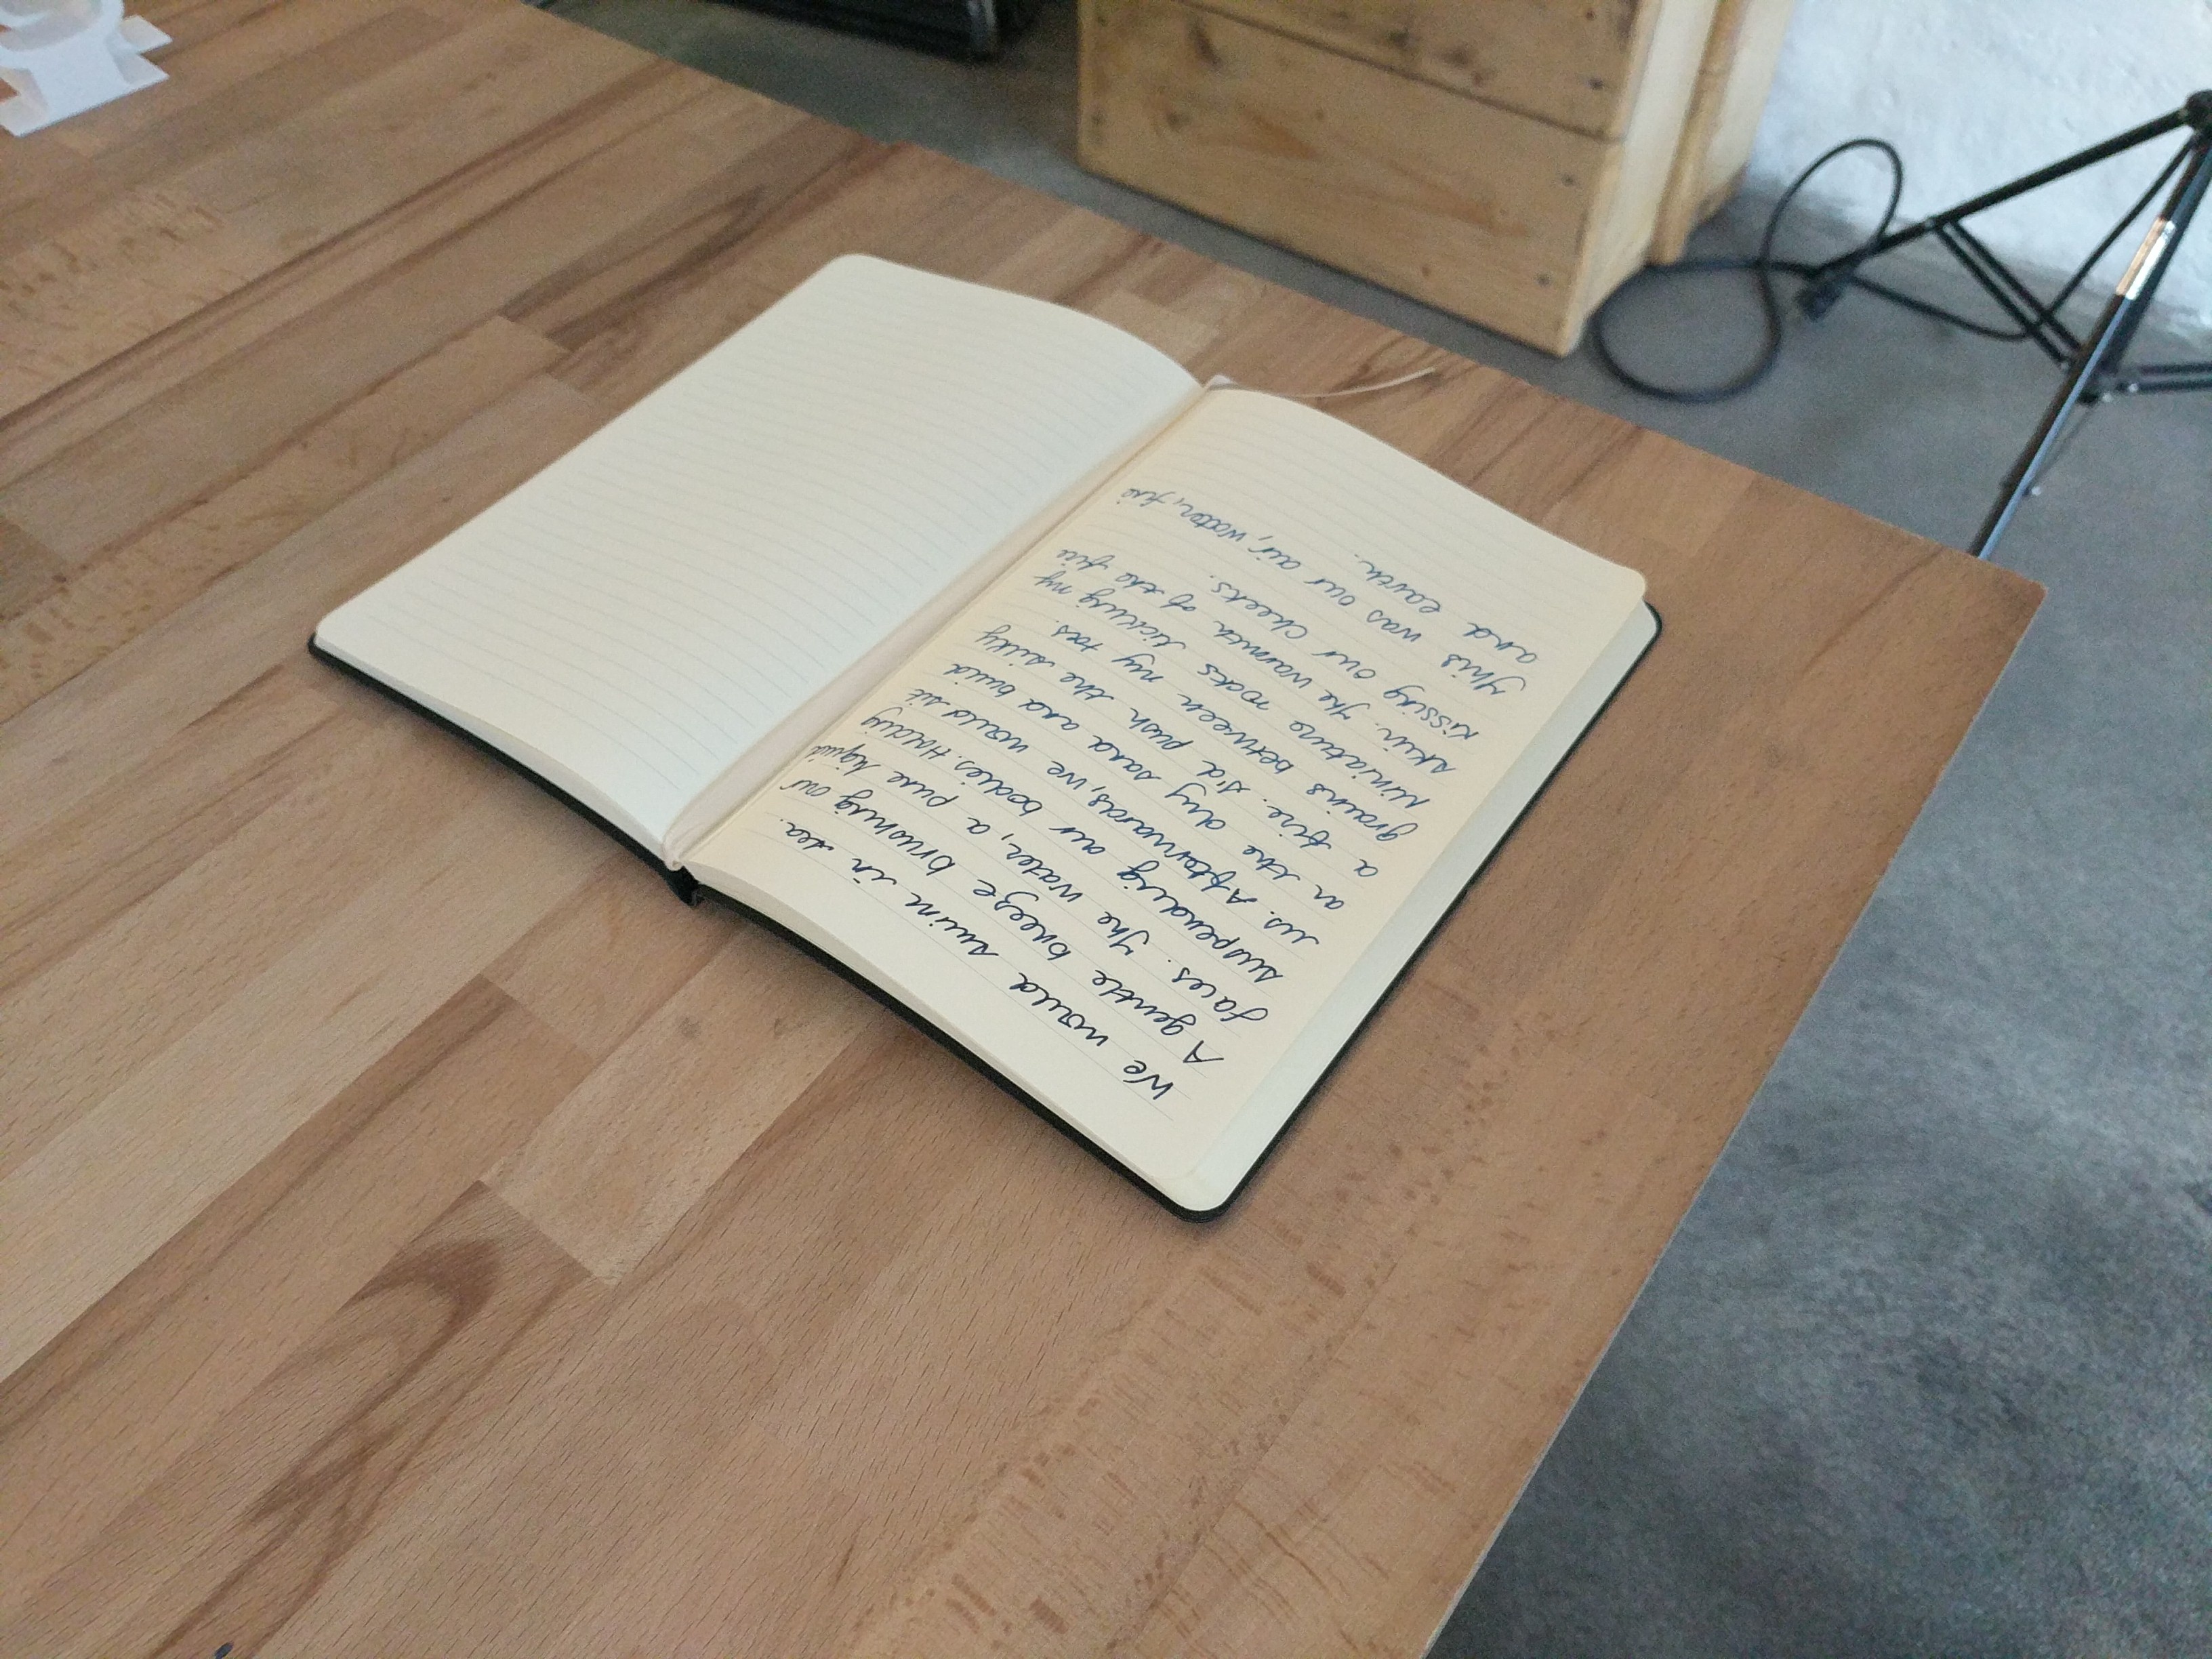 We would swim in sea.
A gentle breeze brushing our
faces. The water, a pure liquid
suspending our bodies. Holding
us. Afterwards, we would sit
on the dry sand and build
a fire. I'd push the silky
grains between my toes.
rocks tickling my
skin. The warmth of the fire
kissing our cheeks.
This was our air, water, fire
and earth.